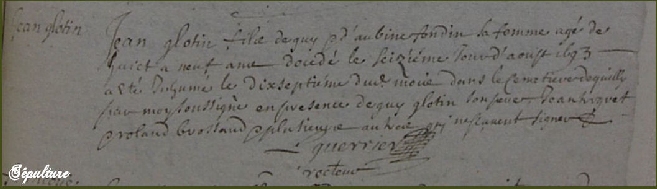 Jean glotin
Jean glotin filz de guy et d'aubine fondin sa femme agé de
huict a neuf ans decédé le seizième Jour d'aoust 1693
a été Inhumé le dixseptieme dud mois dans le Cemetiere de
par moy soussigné en presence de guy glotin son pere Jean
et plusieurs autres qui ne scavent signer
guerrier
recteur
Sépulture